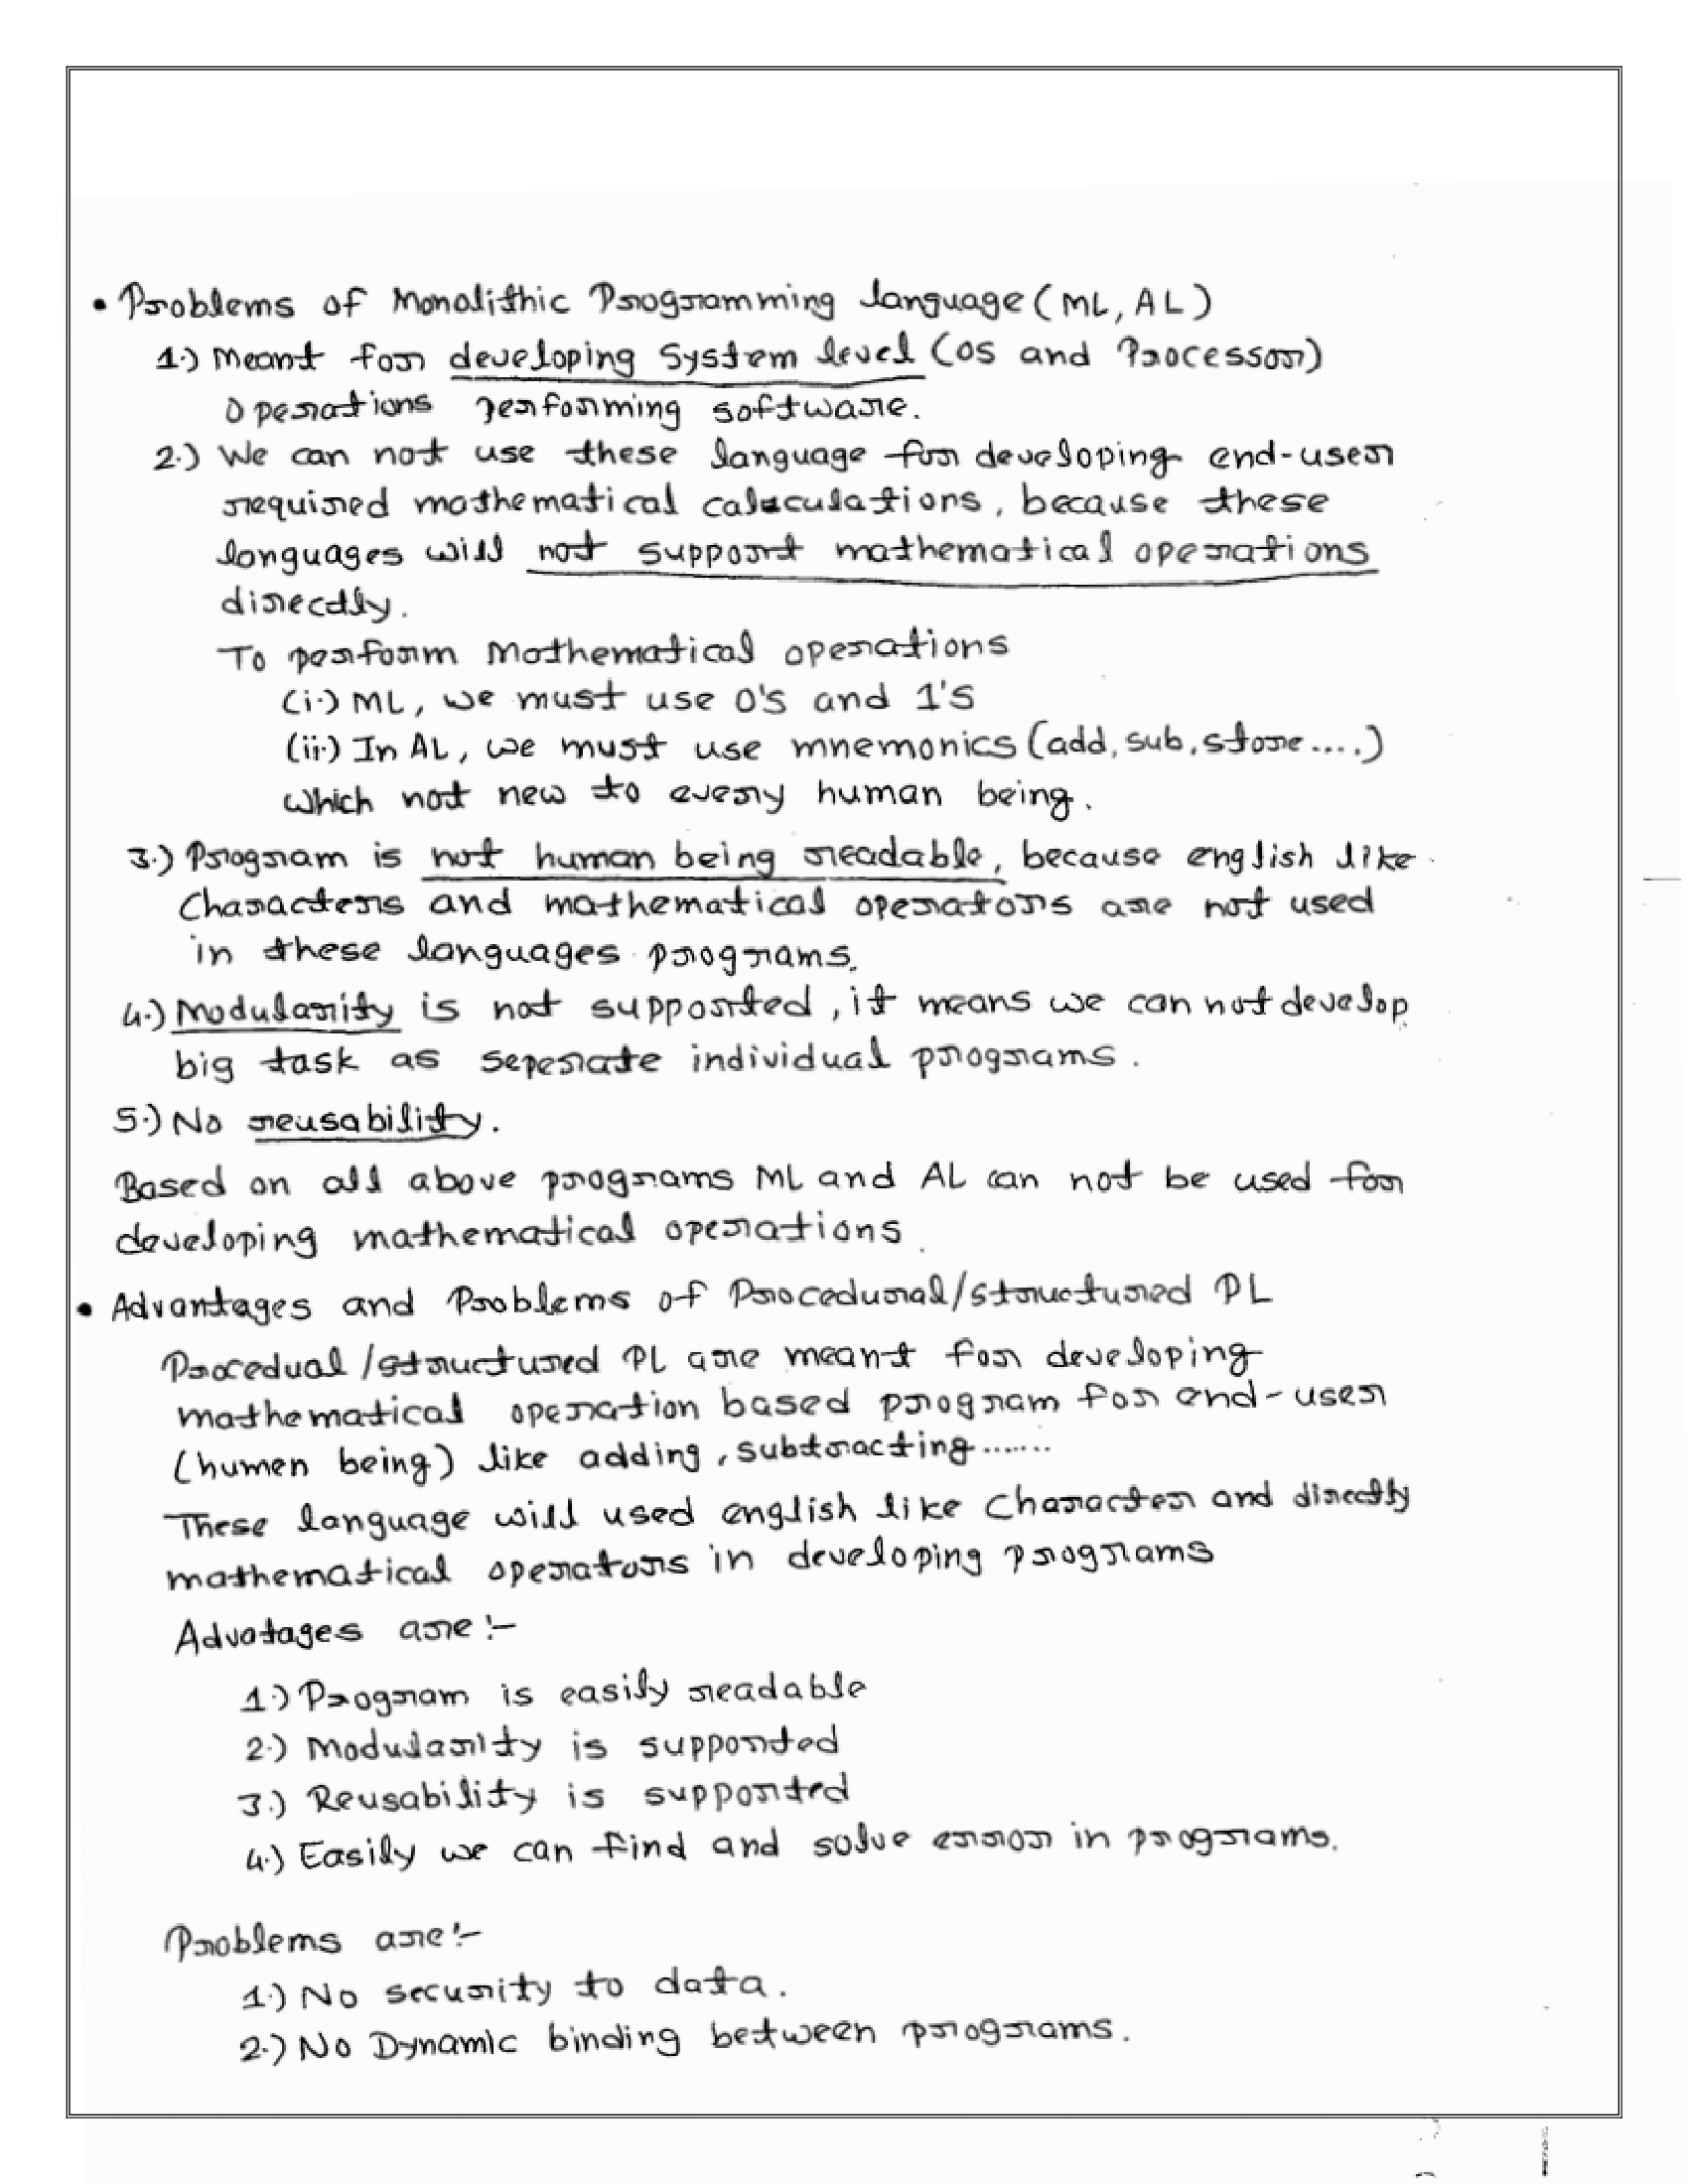 • Problems of Monolithic Programming language (ML, AL)
1.) Meant for developing System level (OS and Processor)
Operations performing software.
2.) We can not use these language for developing end-user
required mathematical calaculations, because these
languages will not support mathematical operations
directly.
To perform Mathematical operations
(i.) ML, we must use 0's and 1's
(ii.) In AL, we must use mnemonics (add, sub, store ....)
which not new to every human being.
3.) Program is not human being readable, because english like
Characters and mathematical operators are not used
in these languages programs.
4.) Modularity is not supported, it means we can not develop
big task as seperate individual programs.
5.) No reusability.
Based on all above programs ML and AL can not be used for
developing mathematical operations.
• Advantages and Problems of Procedural/structured PL
Procedual /structured PL are meant for developing
mathematical operation based program for end-user
(humen being) like adding, subtracting .......
These language will used english like Character and directly
mathematical operators in developing programs
Advatages are :-
1.) Program is easily readable
2.) Modularity is supported
3.) Reusability is supported
4.) Easily we can find and solve error in programs.
Problems are :-
1.) No security to data.
2.) No Dynamic binding between programs.